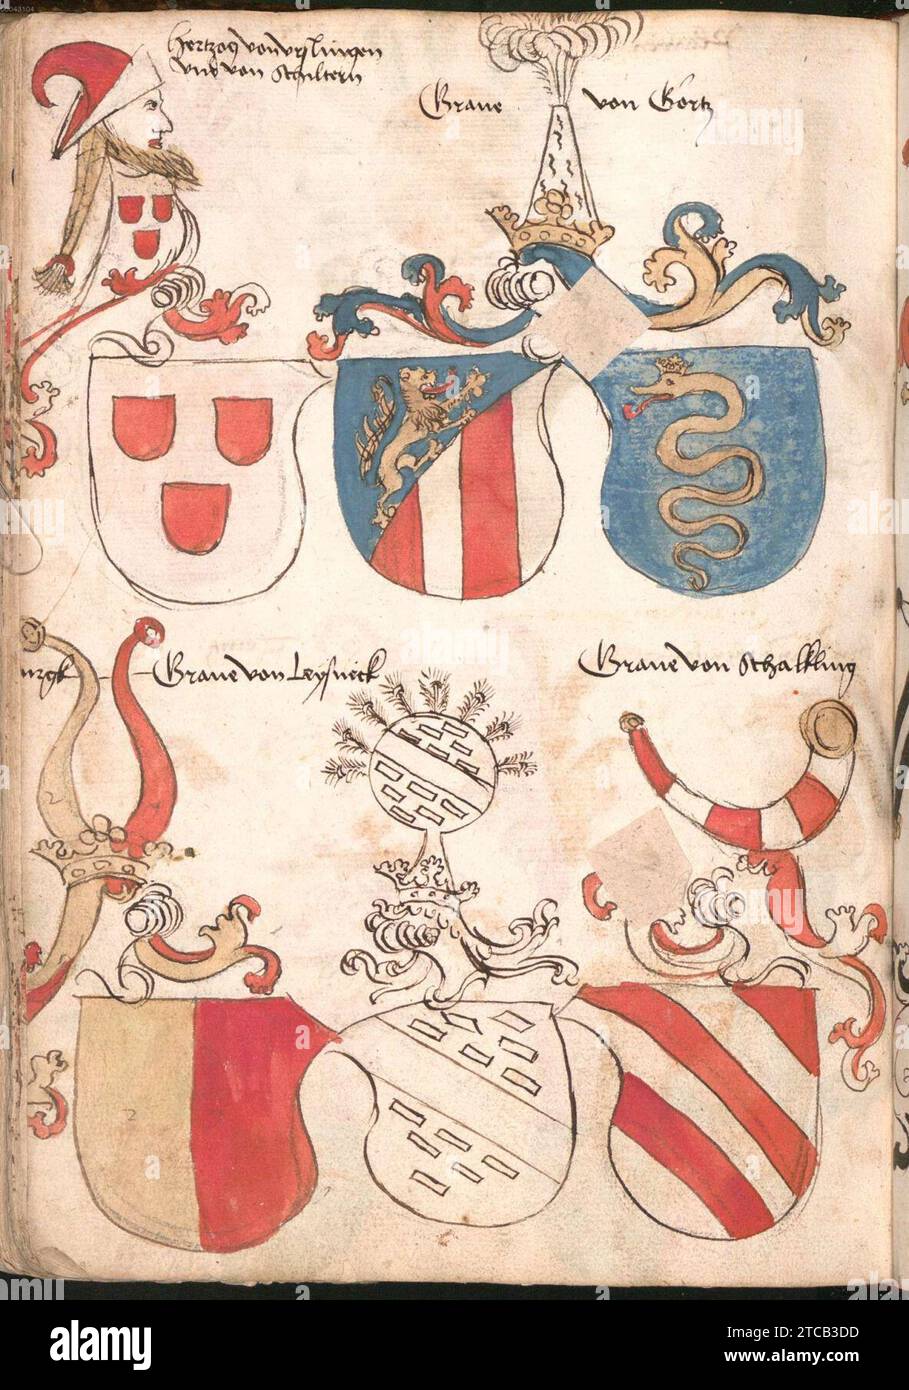 Hertzog von Urslingen
und von Schiltern
Graue von Gortz
Graue von Leysneck
Graue von Schalkling
2
2
alamy
Image ID: 2TCB3DD
www.alamy.com